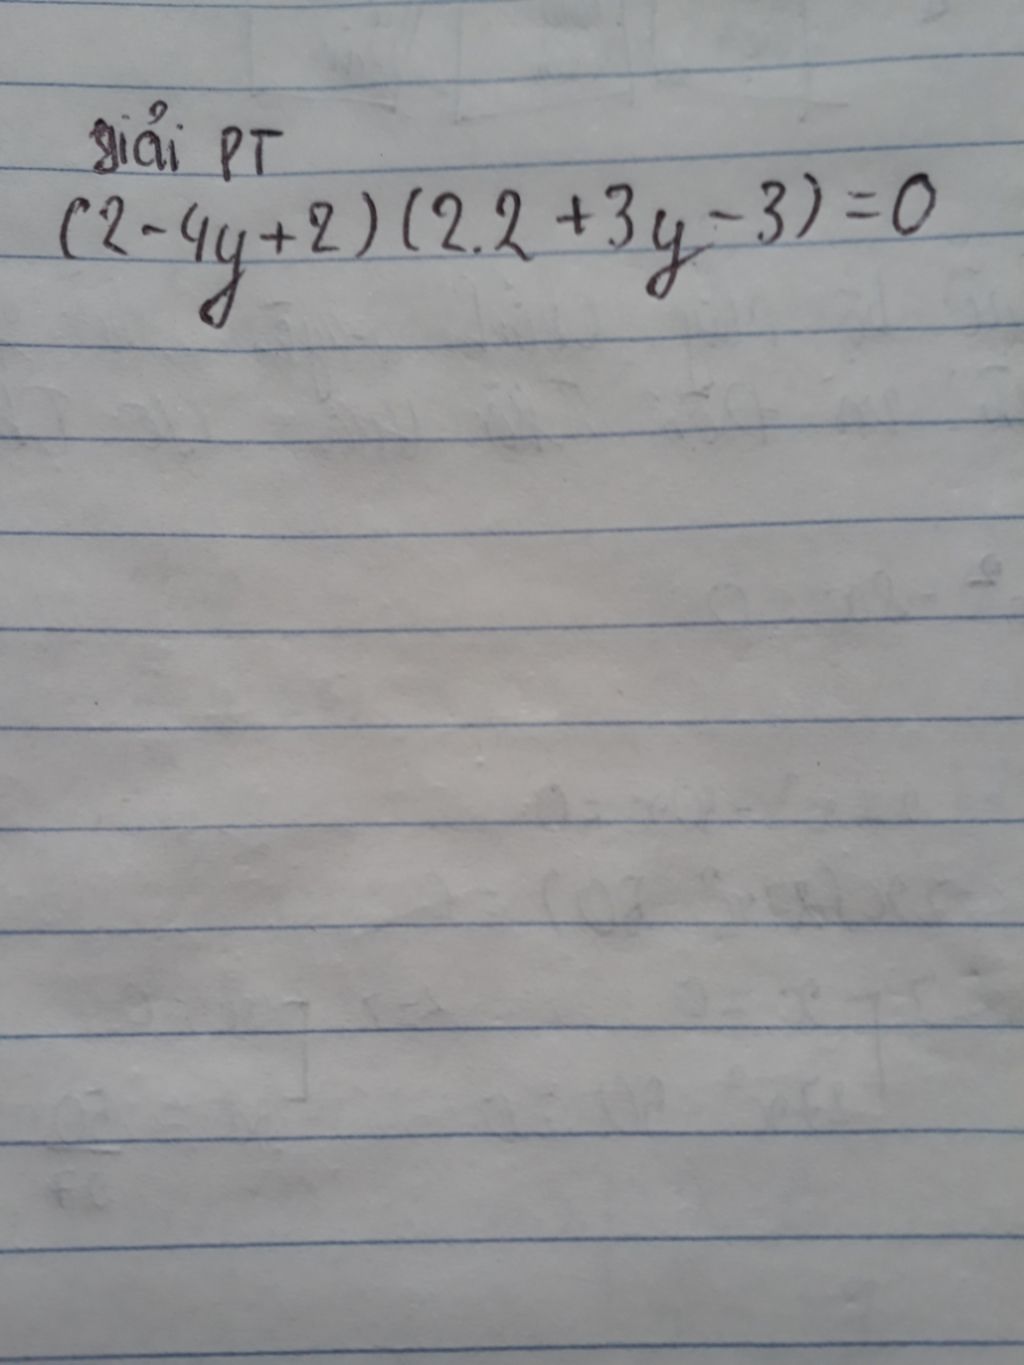 giải PT
(2-4y+2)(2.2+3y-3)=0